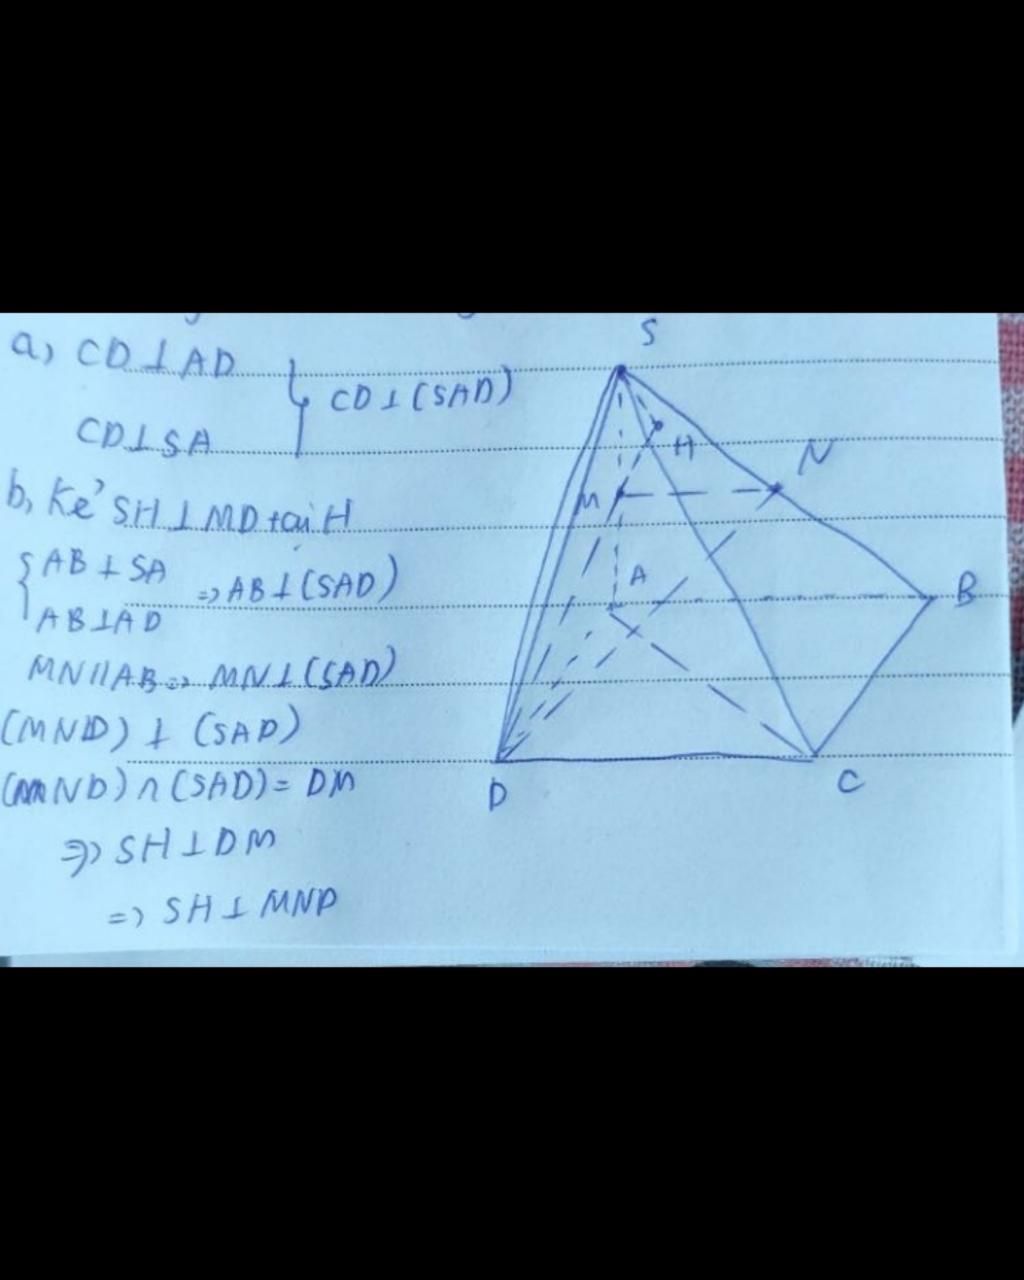 a, CD⊥AD
CD⊥SA
CD⊥(SAD)
b, Kẻ SH⊥MD tại H
AB⊥SA
AB⊥AD
=> AB⊥(SAD)
MN//AB => MN⊥(SAD)
(MND) ⊥ (SAD)
(MND)∩(SAD)= DM
=> SH⊥DM
=> SH⊥MND
S
H
N
M
A
B
D
C